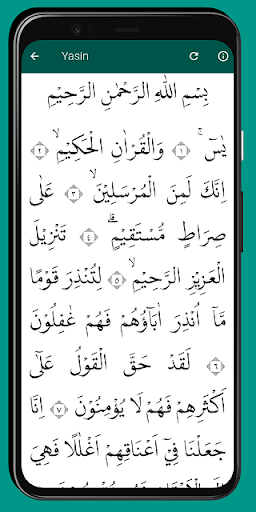 Yasin
بِسْمِ اللّٰهِ الرَّحْمٰنِ الرَّحِيْمِ
يٰسۤ ۚ ﴿١﴾ وَالْقُرْاٰنِ الْحَكِيْمِۙ ﴿٢﴾
اِنَّكَ لَمِنَ الْمُرْسَلِيْنَۙ ﴿٣﴾ عَلٰى
صِرَاطٍ مُّسْتَقِيْمٍۗ ﴿٤﴾ تَنْزِيْلَ
الْعَزِيْزِ الرَّحِيْمِۙ ﴿٥﴾ لِتُنْذِرَ قَوْمًا
مَّآ اُنْذِرَ اٰبَاۤؤُهُمْ فَهُمْ غٰفِلُوْنَ
﴿٦﴾ لَقَدْ حَقَّ الْقَوْلُ عَلٰٓى
اَكْثَرِهِمْ فَهُمْ لَا يُؤْمِنُوْنَ ﴿٧﴾ اِنَّا
جَعَلْنَا فِيْٓ اَعْنَاقِهِمْ اَغْلٰلًا فَهِيَ